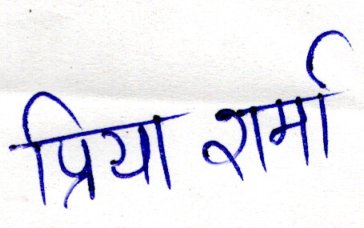 प्रिया शर्मा